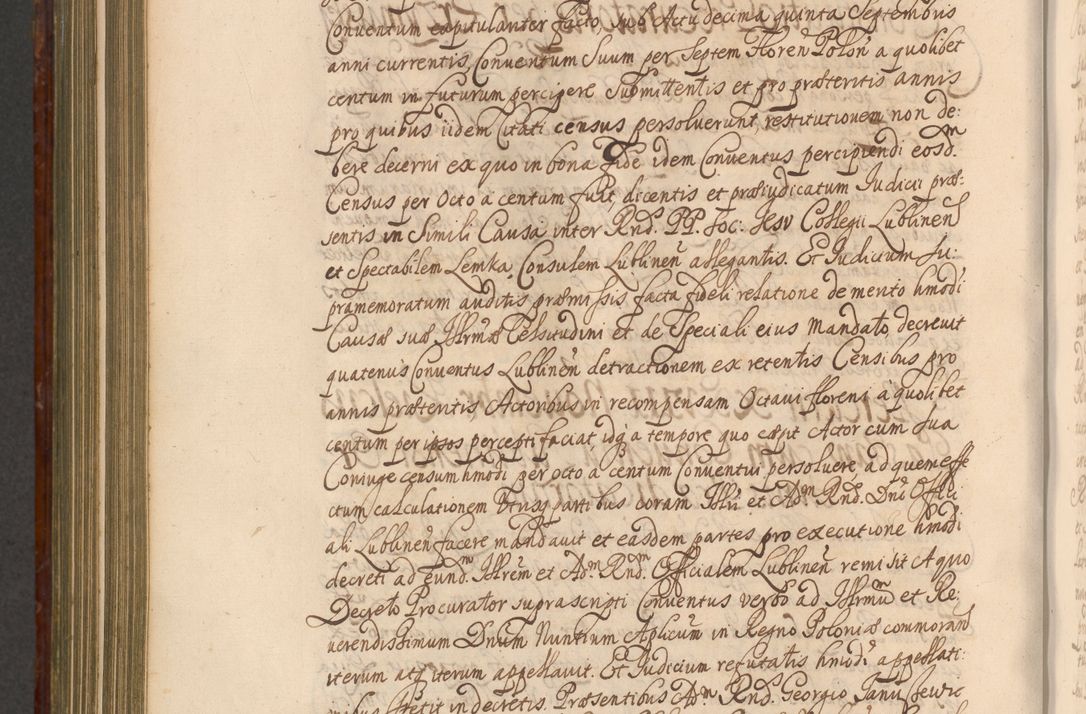 Conventum capitulariter facto, sub Actu decima quinta Septembris
anni currentis, Conventum Suum per Septem Floren̄ Polon̄ a quolibet
centum in futurum percipere submittentis et pro præteritis annis
pro quibus iidem Citati census persolverunt, restitutionem non de:
bere decerni ex quo in bona fide idem Conventus percipiendi eosd.m
Census per Octo a centum fuit, dicentis et præiudicatum Iudicii præ:
sentis in Simili Causa inter Rnd. PP. Soc: Jesv Collegii Lublinen
et Spectabilem Lemka Consulem Lublinen̄ allegantis. Et Iudicium su:
pramemoratum auditis præmissis facta fideli relatione de merito hmodi
Causæ suæ Illrmæ Celsitudini et de Speciali eius mandato, decrevit
quatenus Conventus Lublinen̄ detractionem ex retentis Censibus pro
annis præteritis, Actoribus in recompensam Octavi floreni a quolibet
centum per ipsos percepti faciat idq; a tempore quo cæpit Actor cum sua
Coniuge censum hmodi per octo a centum Conventui persolvere ad quem effe
ctum calculationem Utrisq; partibus coram Illri et Adm Rnd. Dno Offici
ali Lublinen̄ facere mandavit et easdem partes pro executione hmodi
decreti ad eund.m Illrem et Adm Rnd.m Officialem Lublinen̄ remisit A quo
Decreto Procurator suprascripti Conventus verbo ad Illrmū et Re:
verendissimum Dnum Nuntium Aplicum in Regno Poloniæ commoran
iterum atq; iterum appellavit. Et Iudicium refutatis hmodi appellati:
onibus stetit in decretis. Præsentibus Adm Rnd. Georgio Ianuszewic